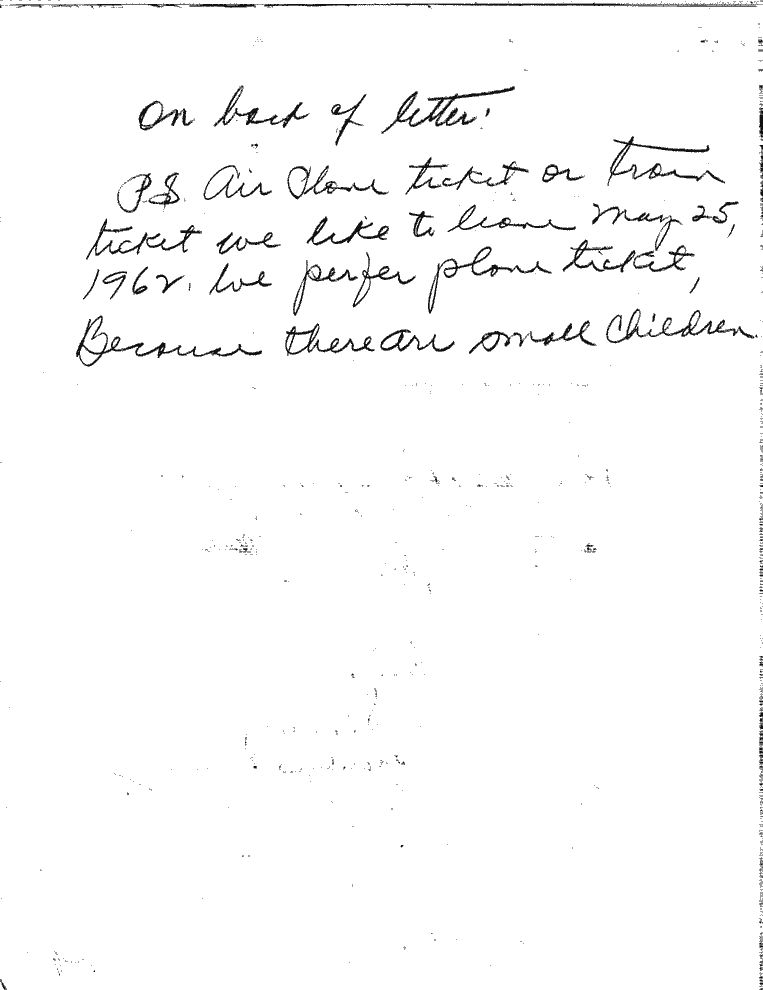 On back of letter:
PS. Air Plane ticket or train
ticket we like to leave May 25,
1962. We perfer plane ticket,
Because there are small Children